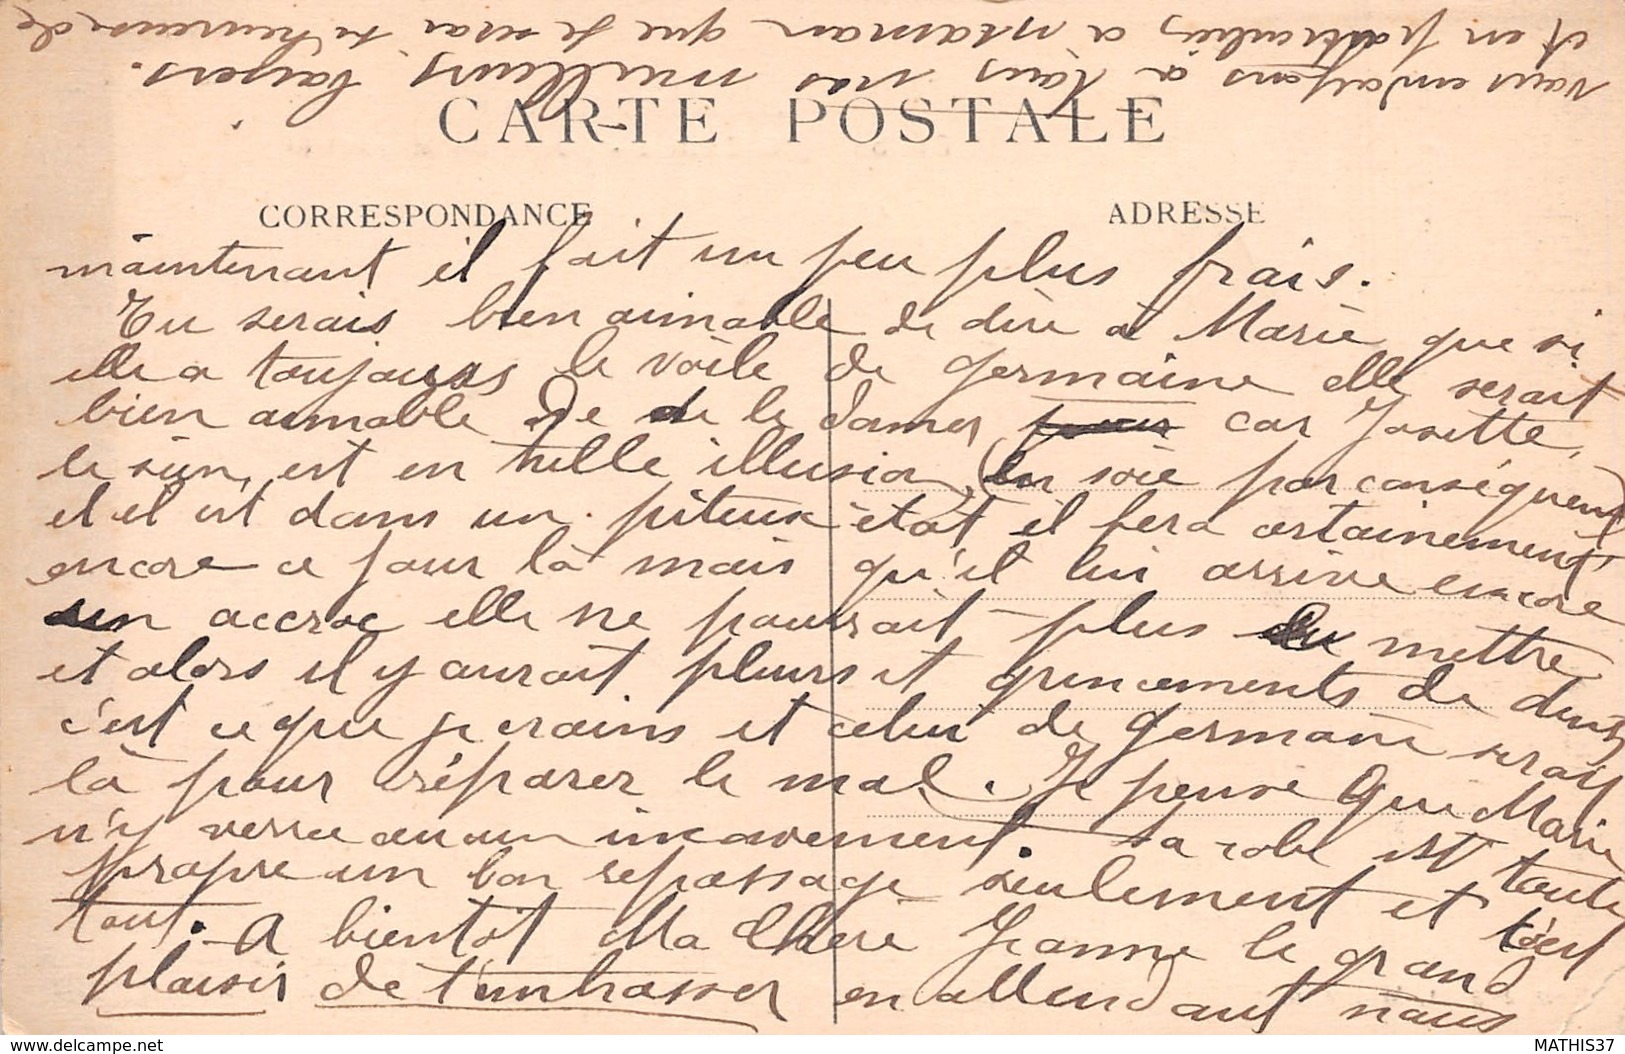 CARTE POSTALE
CORRESPONDANCE
ADRESSE
maintenant il fait un peu plus frais.
Tu serais bien aimable de dire à Marie que si
elle a toujours le voile de Germaine elle serait
bien aimable de le donner car Josette,
le sien, est en tulle illusion, (en soie par conséquent)
et il est dans un piteux état il fera certainement
encore ce jour là mais qu'il lui arrive encore
un accroc elle ne pourrait plus le mettre
et alors il y aurait pleurs et grincements de dents
c'est ce que je crains et celui de Germaine serait
là pour réparer le mal. Je pense que Marie
n'y verra aucun inconvenient. Sa robe est toute
propre un bon repassage seulement et c'est
tout. A bientôt Ma Chère Jeanne le grand
plaisir de t'embrasser en attendant nous
vous envoyons à tous nos meilleurs baisers.
et en particulier à maman que je serai si heureuse de
MATHIS37